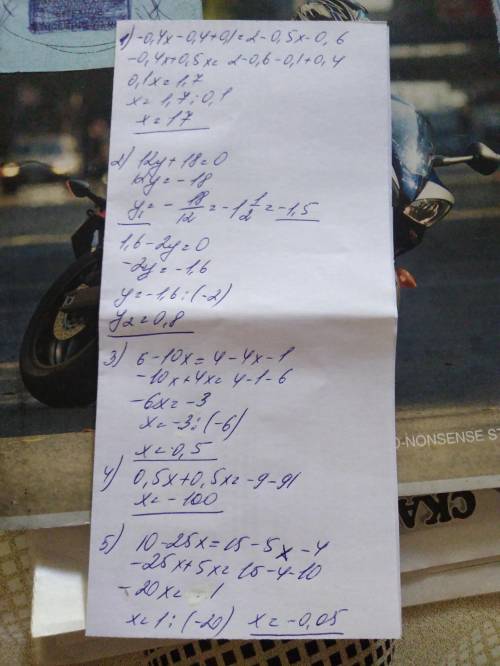 1) -0,4x-0,4+0,1=2-0,5x-0,6
-0,4x+0,5x=2-0,6-0,1+0,4
0,1x=1,7
x=1,7:0,1
x=17
2) 12y+18=0
12y=-18
y₁=-18/12=-1 1/2=-1,5
1,6-2y=0
-2y=-1,6
y=-1,6:(-2)
y2=0,8
3) 6-10x=4-4x-1
-10x+4x=4-1-6
-6x=-3
x=-3:(-6)
x=0,5
O-NONSENSE ST
4) 0,5x+0,5x=-9-91
x=-100
СКА
5) 10-25x=15-5x-4
-25x+5x=15-4-10
-20x=1
x=1:(-20) x=-0,05